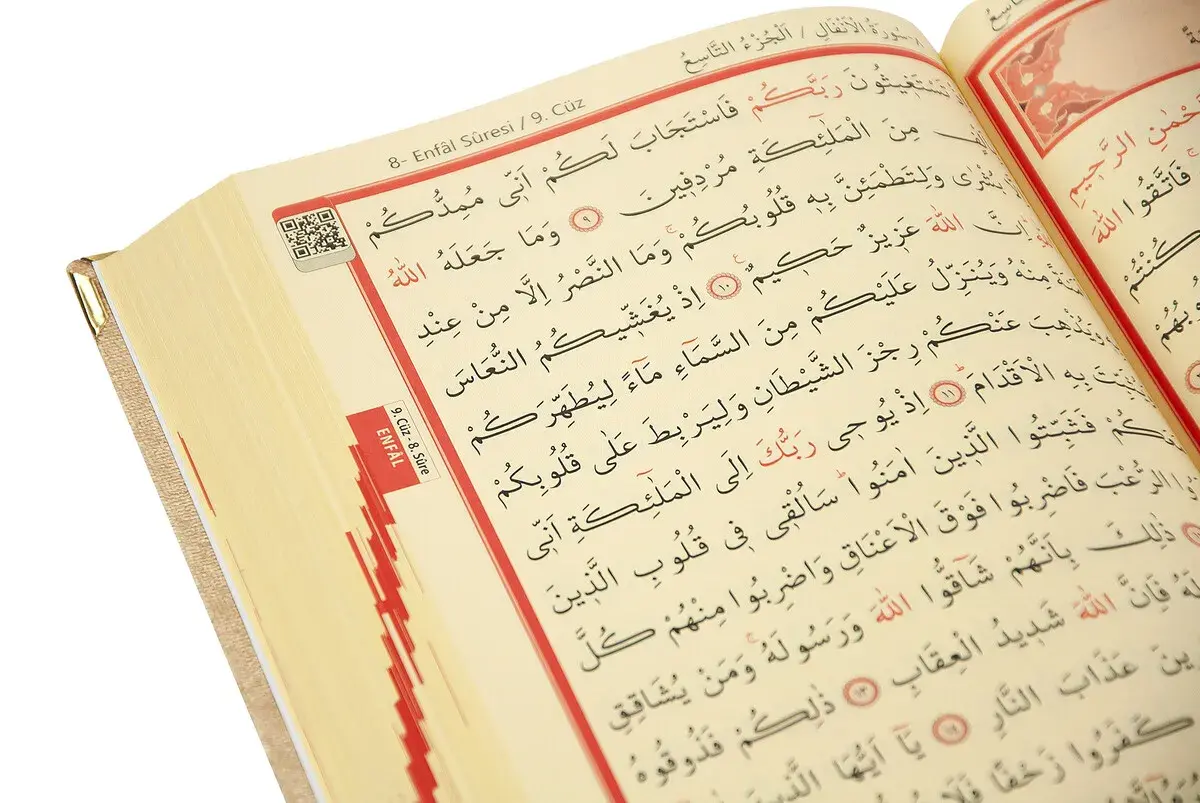 سُورَةُ الْاَنْفَالِ / اَلْجُزْءُ التَّاسِعُ
8- Enfâl Sûresi / 9. Cüz
تَسْتَغٖيثُونَ رَبَّكُمْ فَاسْتَجَابَ لَكُمْ اَنّٖى مُمِدُّكُمْ
مِنَ الْمَلٰٓئِكَةِ مُرْدِفٖينَ ﴿٩﴾ وَمَا جَعَلَهُ اللّٰهُ
بُشْرٰى وَلِتَطْمَئِنَّ بِهٖ قُلُوبُكُمْ وَمَا النَّصْرُ اِلَّا مِنْ عِنْدِ
اِنَّ اللّٰهَ عَزٖيزٌ حَكٖيمٌ ﴿١٠﴾ اِذْ يُغَشّٖيكُمُ النُّعَاسَ
مِنْهُ وَيُنَزِّلُ عَلَيْكُمْ مِنَ السَّمَٓاءِ مَٓاءً لِيُطَهِّرَكُمْ
وَيُذْهِبَ عَنْكُمْ رِجْزَ الشَّيْطَانِ وَلِيَرْبِطَ عَلٰى قُلُوبِكُمْ
بِهِ الْاَقْدَامَ ﴿١١﴾ اِذْ يُوحٖى رَبُّكَ اِلَى الْمَلٰٓئِكَةِ اَنّٖى
فَثَبِّتُوا الَّذٖينَ اٰمَنُوا سَاُلْقٖى فٖى قُلُوبِ الَّذٖينَ
الرُّعْبَ فَاضْرِبُوا فَوْقَ الْاَعْنَاقِ وَاضْرِبُوا مِنْهُمْ كُلَّ
ذٰلِكَ بِاَنَّهُمْ شَٓاقُّوا اللّٰهَ وَرَسُولَهُ وَمَنْ يُشَاقِقِ
فَاِنَّ اللّٰهَ شَدٖيدُ الْعِقَابِ ﴿١٣﴾ ذٰلِكُمْ فَذُوقُوهُ
عَذَابَ النَّارِ ﴿١٤﴾ يَٓا اَيُّهَا الَّذٖينَ
كَفَرُوا زَحْفًا
9. Cüz -8. Sûre
ENFÂL
الرَّحٖيمِ
فَاتَّقُوا اللّٰهَ
كُنْتُمْ